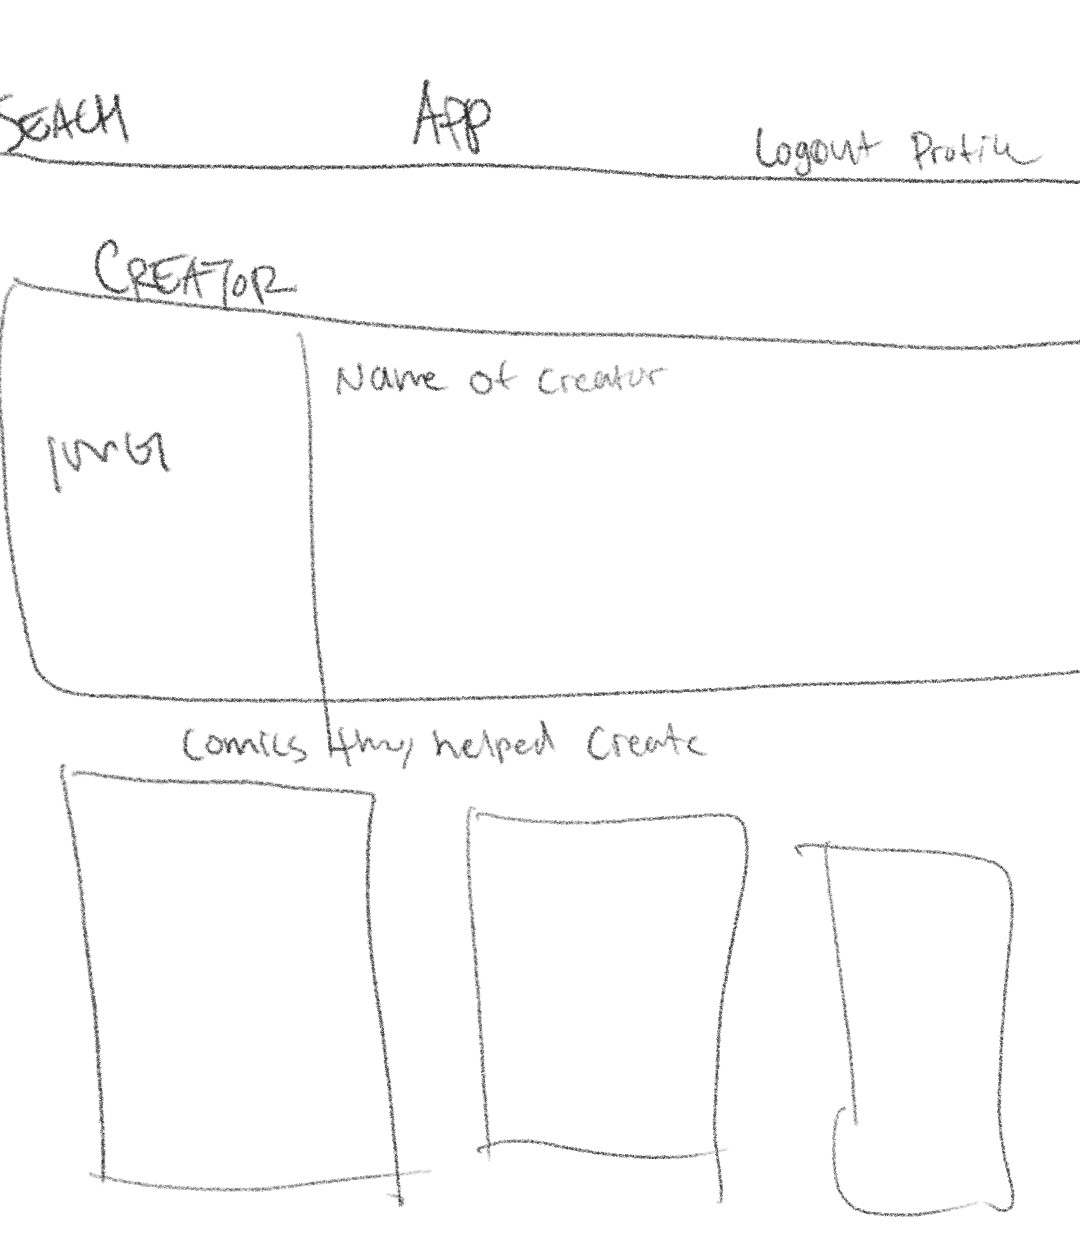 SEACH APP Logout Profile
CREATOR
Name of creator
Comics they helped Create